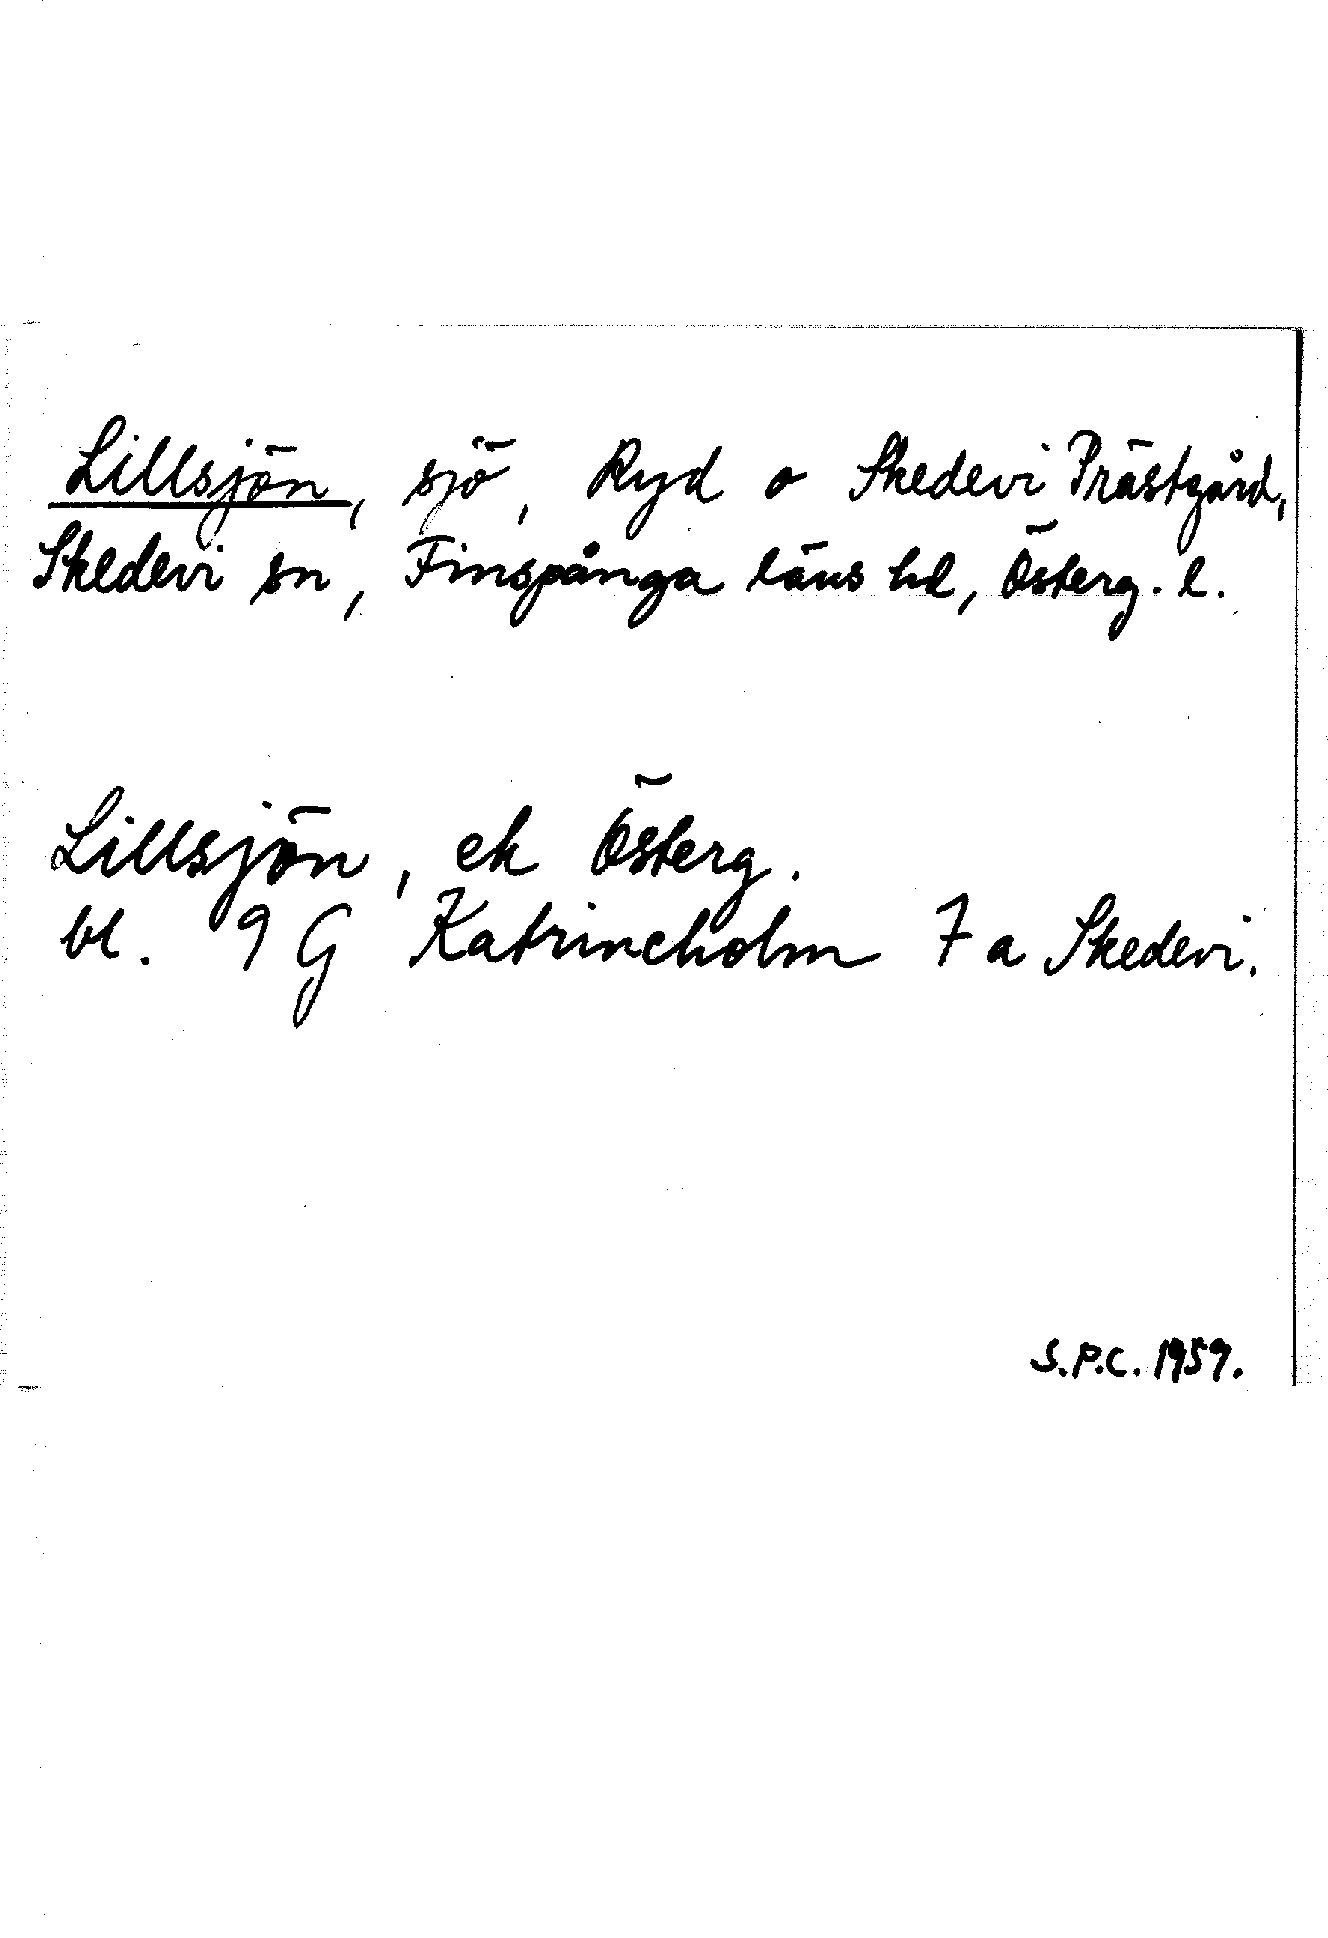 Lillsjön, sjö, Ryd o Skedevi Prästgård,
Skedevi sn, Finspånga läns hd, Österg. l.
Lillsjön, ek Österg.
bl. 9 G Katrineholm 7 a Skedevi.
S.P.C. 1959.